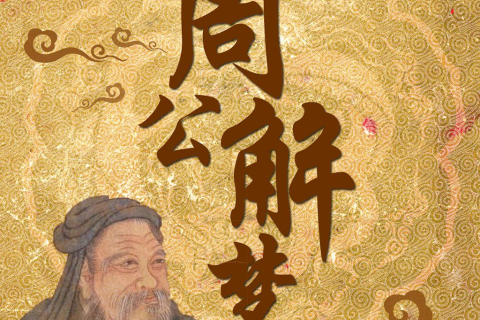 周公解梦